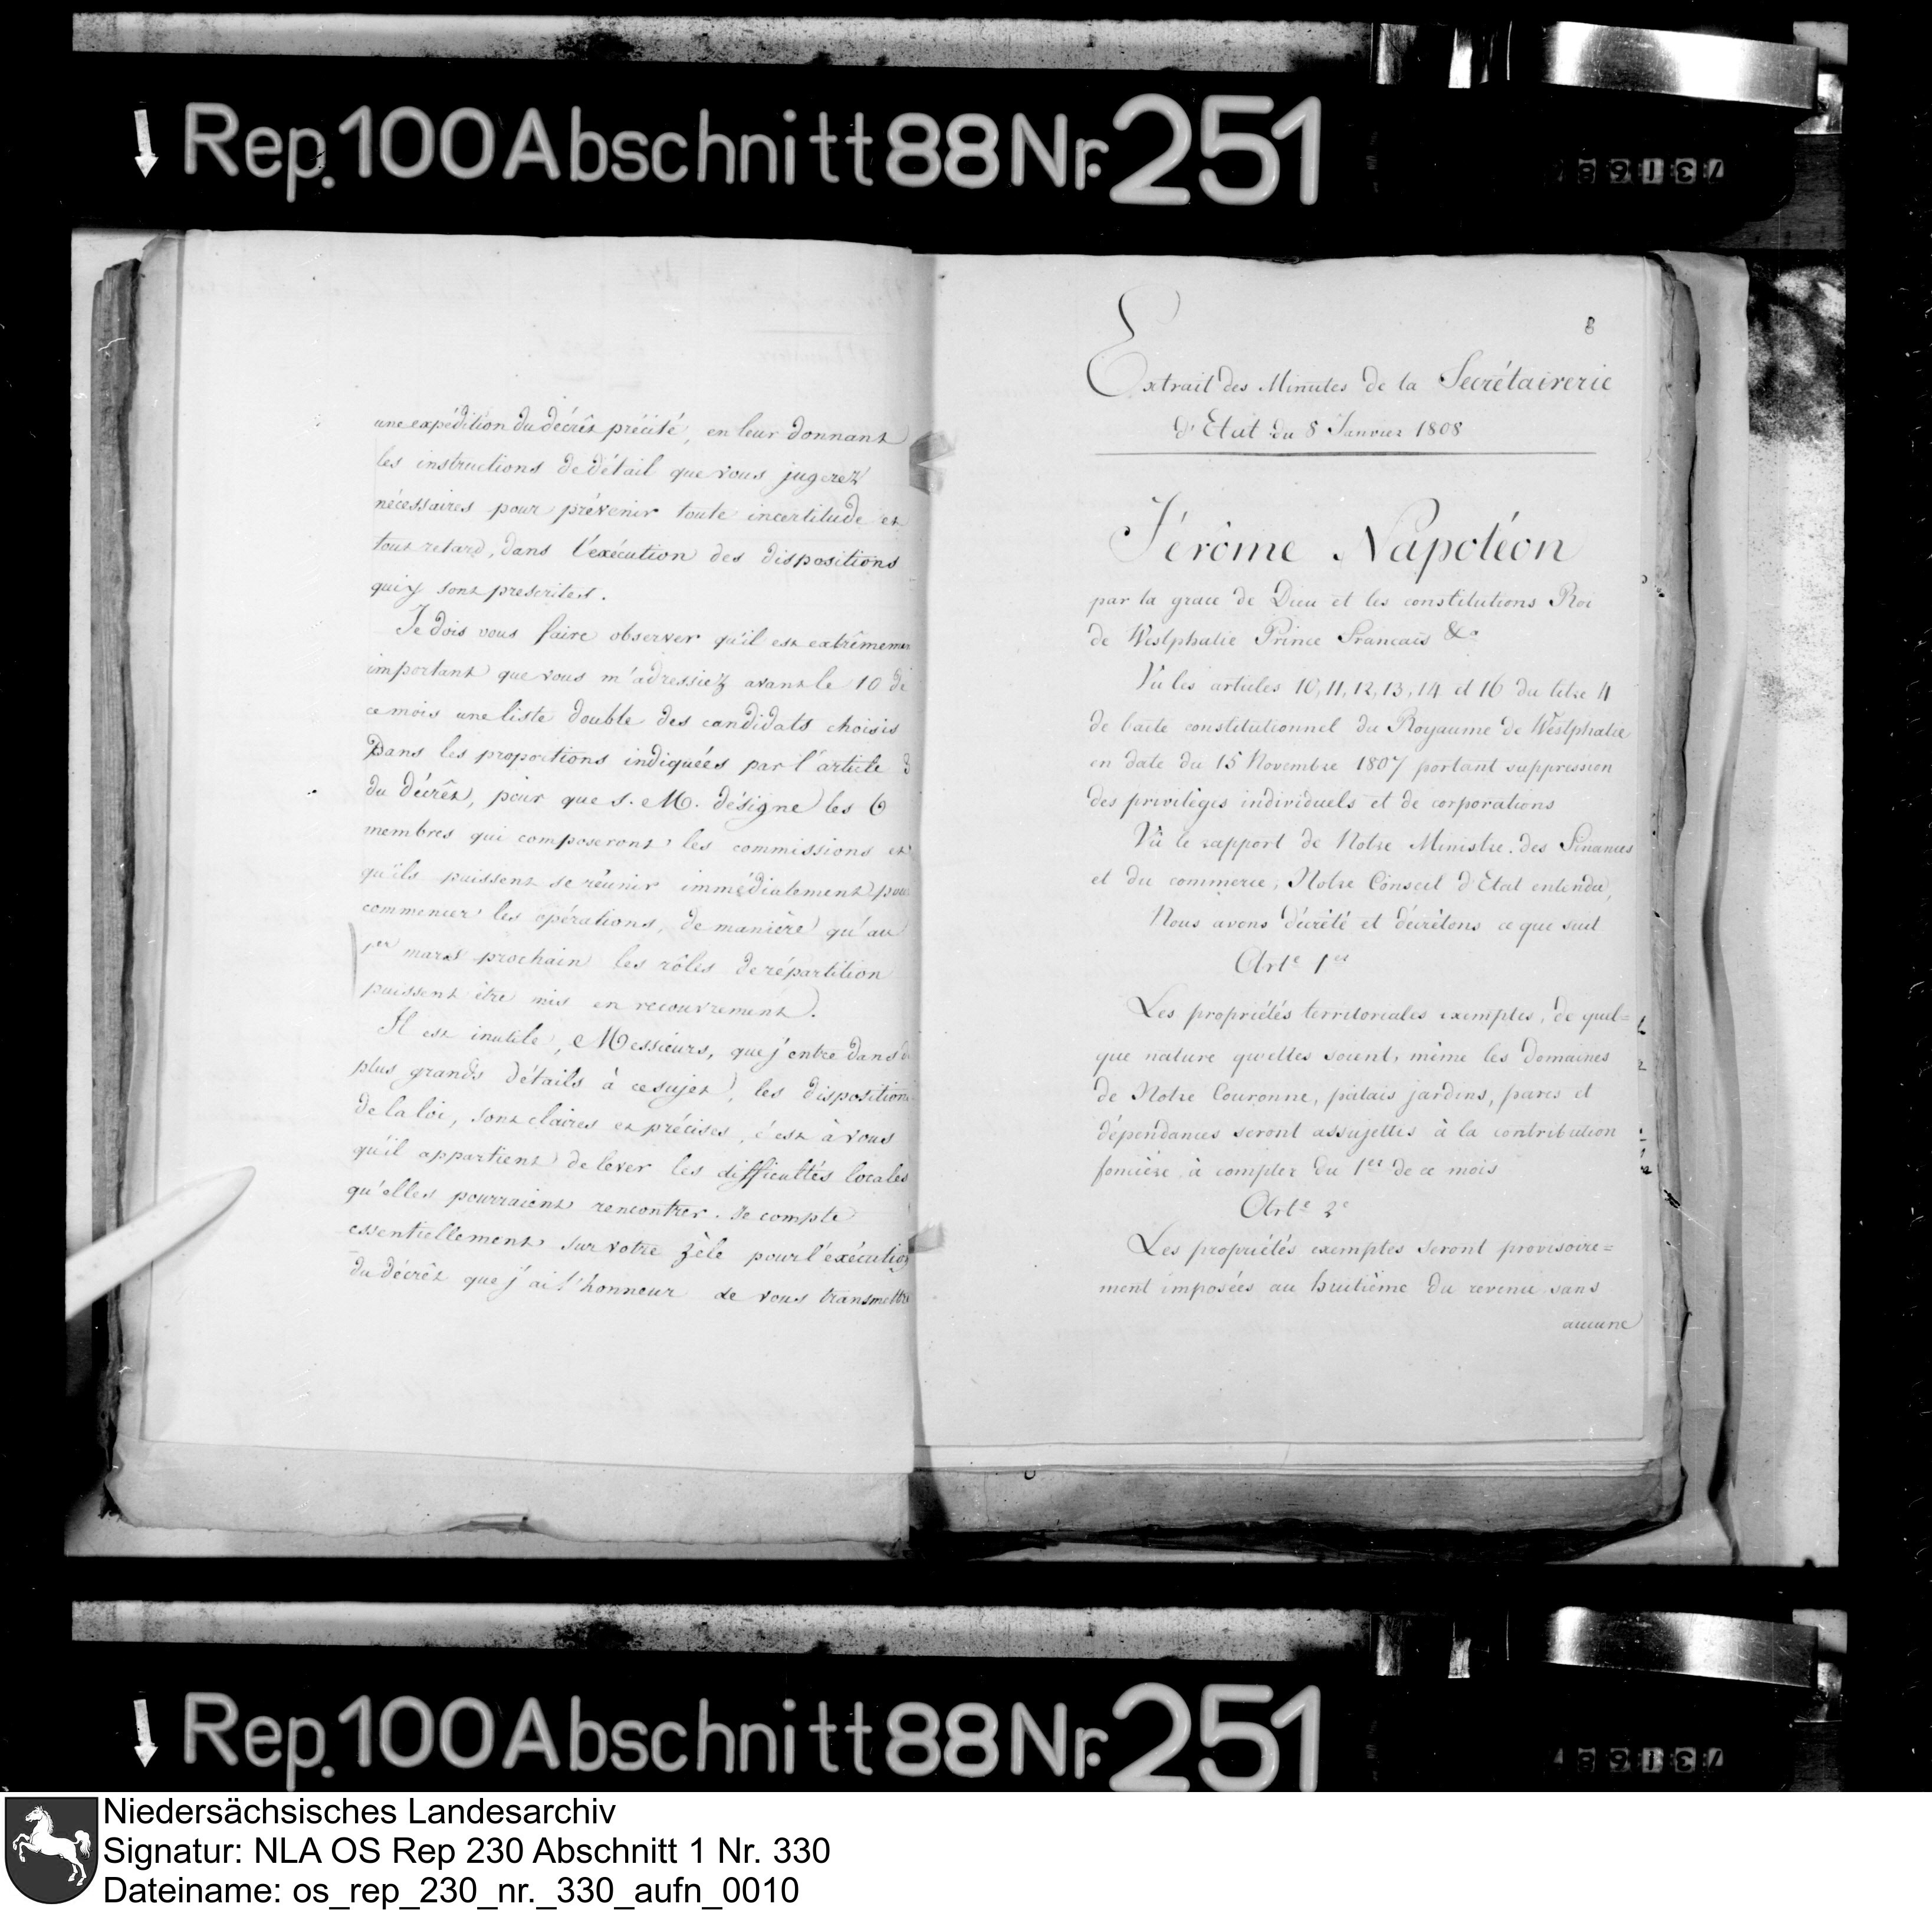 Rep. 100 Abschnitt 88 Nr. 251
une expédition du décrêt précité, en leur donnant
les instructions de détail que vous jugerez
nécessaires pour prévenir toute incertitude et
tout retard, dans l'exécution des dispositions
qui y sont prescrites.
Je dois vous faire observer qu'il est extrêmemen
important que vous m'adressiez avant le 10 de
ce mois une liste double des candidats choisis
Dans les proportions indiquées par l'article 3
du décrêt, pour que S. M. désigne les 6
membres qui composeront les commissions et
qu'ils puissent se réunir immédiatement pour
commencer les opérations, de manière qu'au
1er mars prochain les rôles de répartition
puissent être mis en recouvrement.
Il est inutile, Messieurs, que j'entre dans de
plus grands détails à ce sujet, les disposition
de la loi, sont claires et précises, c'est à vous
qu'il appartient de lever les difficultés locales
qu'elles pourraient rencontrer. Je compte
essentiellement sur votre zèle pour l'exécution
du décrêt que j'ai l'honneur de vous transmettre
8
Extrait des Minutes de la Secrétairerie
d'Etat du 8 Janvier 1808
Jérôme Napoléon
par la grace de Dieu et les constitutions Roi
de Westphalie Prince Francais &c
Vu les articles 10, 11, 12, 13, 14 et 16 du titre 4
de l'acte constitutionnel du Royaume de Westphalie
en date du 15 Novembre 1807 portant suppression
des privilèges individuels et de corporations
Vu le rapport de Notre Ministre des Finances
et du commerce, Notre Conseil d'Etat entendu,
Nous avons décrété et décrétons ce que suit
Arte 1er
Les propriétés territoriales exemptes, de quel=
que nature qu'elles soient, même les domaines
de Notre Couronne, palais jardins, parcs et
dépendances seront assujettis à la contribution
foncière, à compter du 1er de ce mois
Arte 2e
Les propriétés exemptes seront provisoire=
ment imposées au huitième du revenu sans
aucune
Rep. 100 Abschnitt 88 Nr. 251
Niedersächsisches Landesarchiv
Signatur: NLA OS Rep 230 Abschnitt 1 Nr. 330
Dateiname: os_rep_230_nr._330_aufn_0010